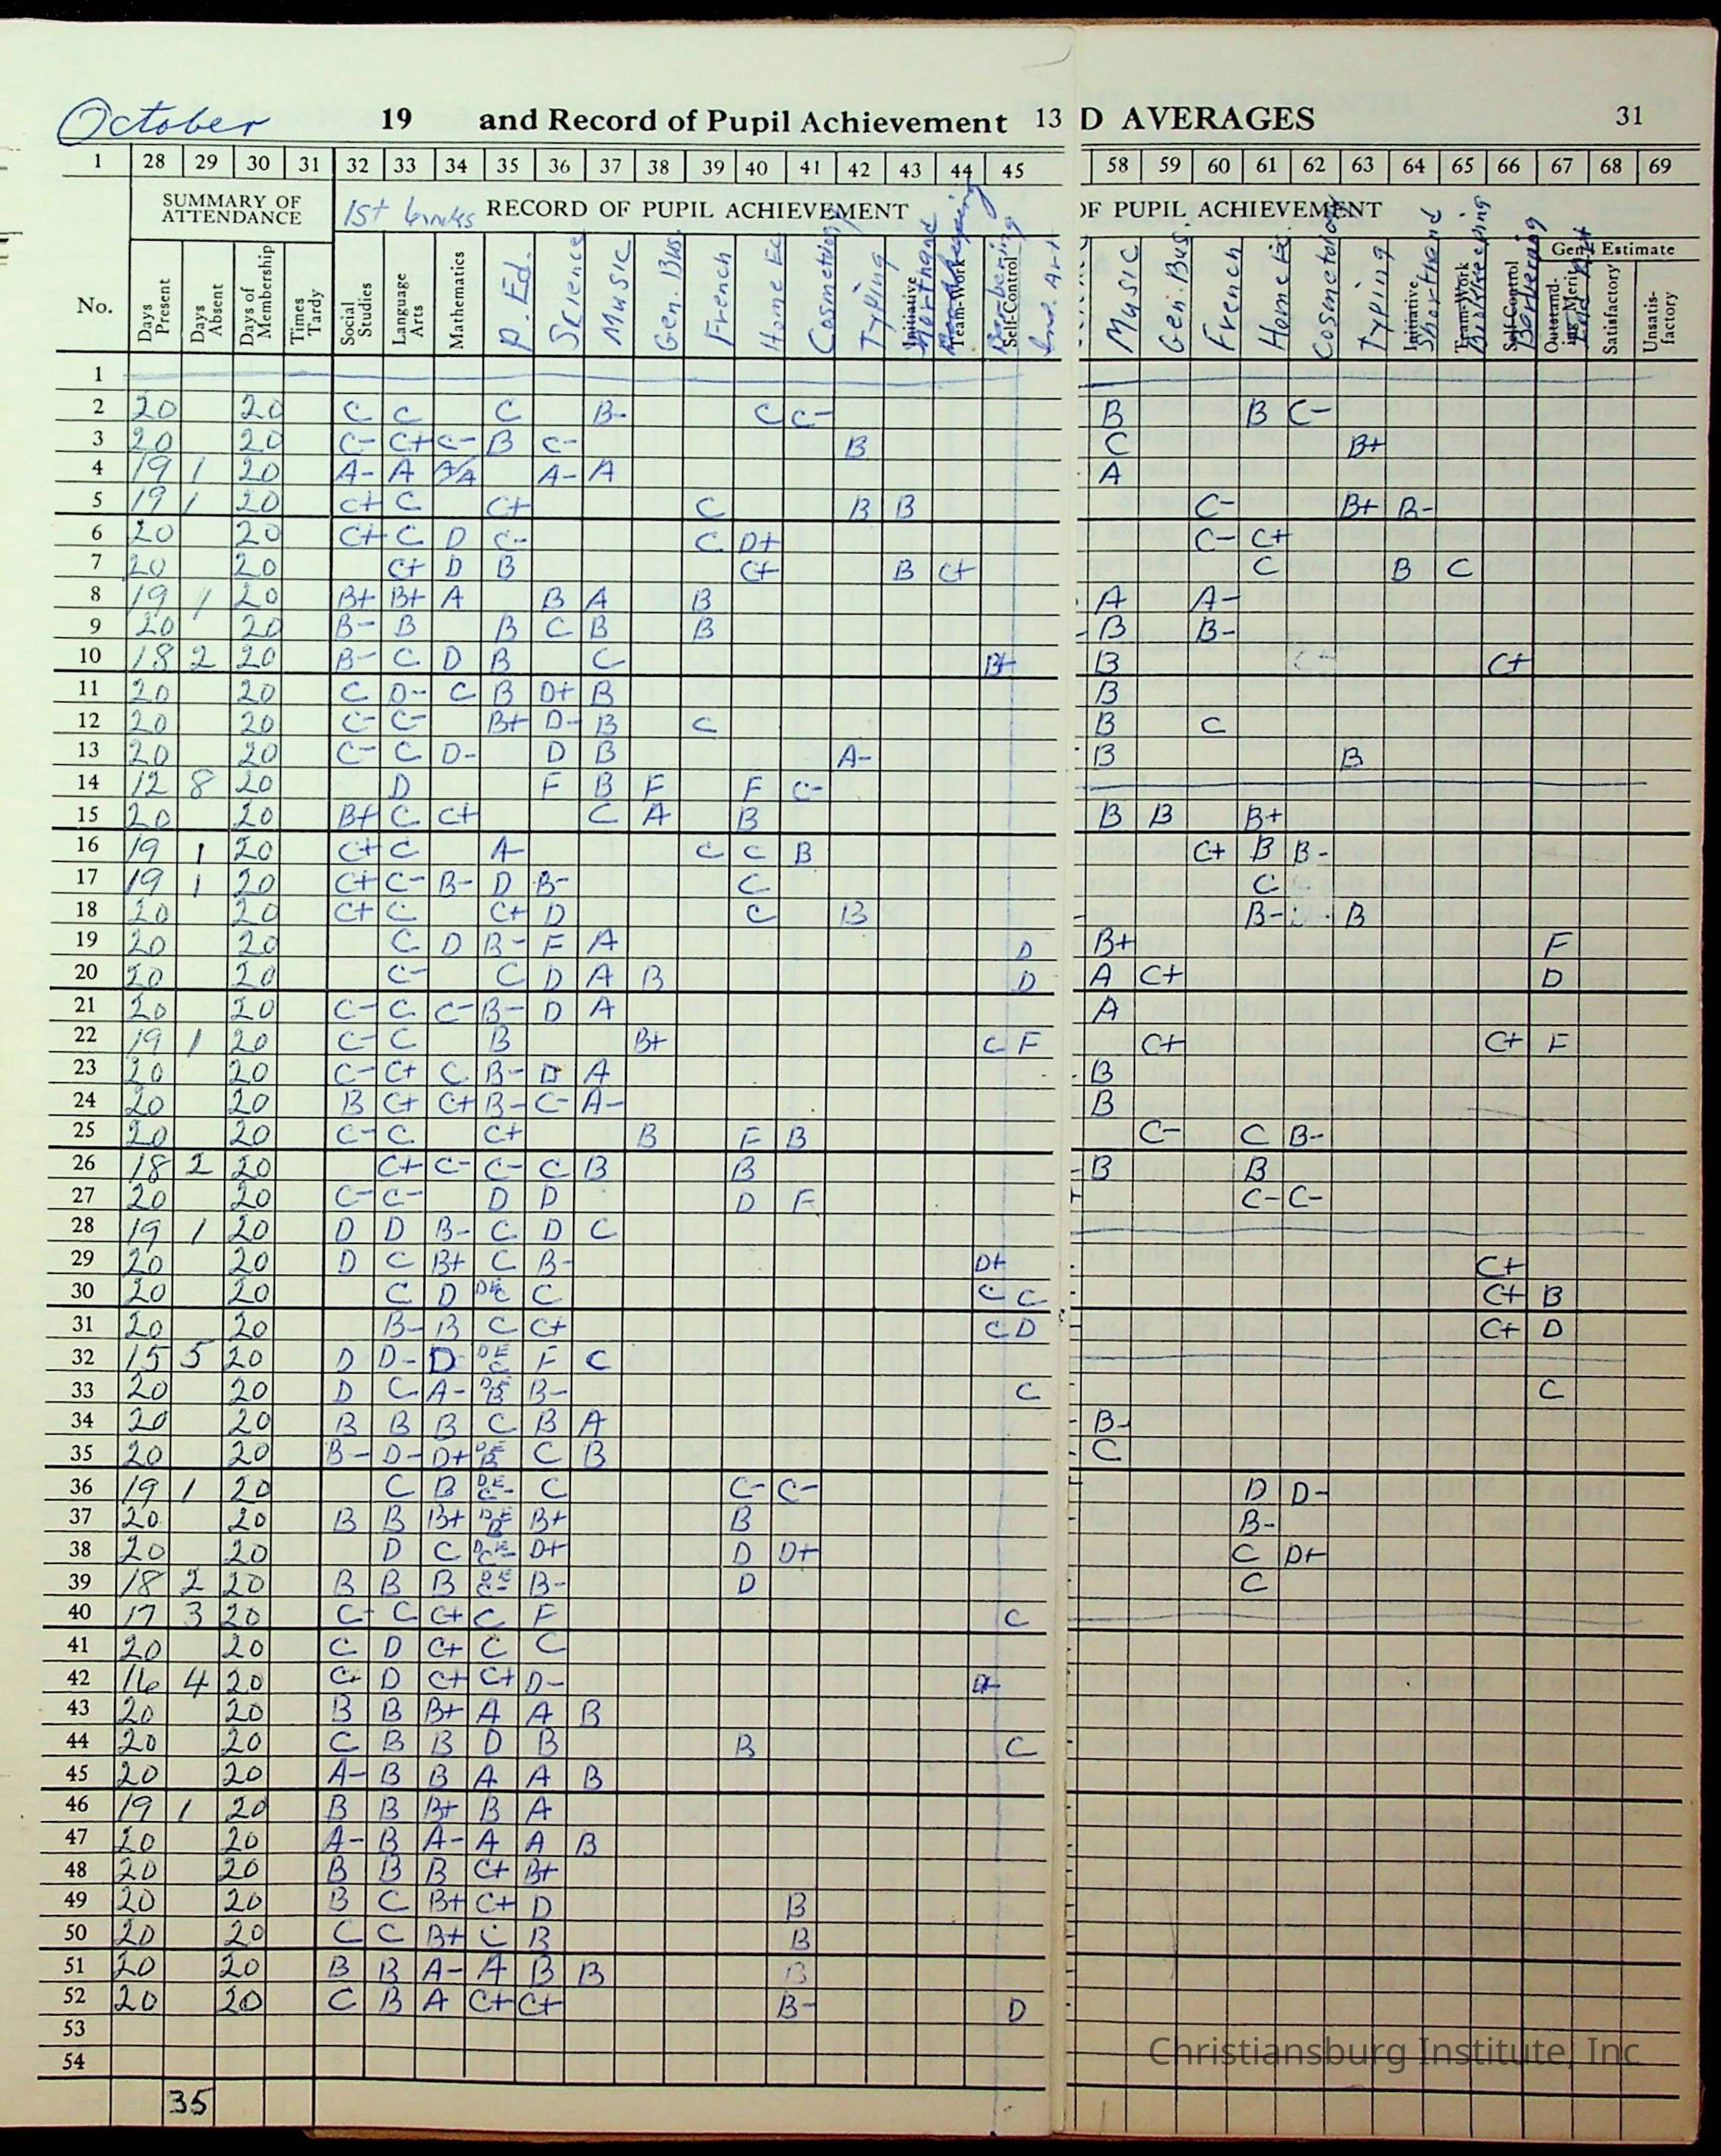 October 19 and Record of Pupil Achievement 13 D AVERAGES 31
1 28 29 30 31 32 33 34 35 36 37 38 39 40 41 42 43 44 45 58 59 60 61 62 63 64 65 66 67 68 69
SUMMARY OF ATTENDANCE 1st 6 weeks RECORD OF PUPIL ACHIEVEMENT OF PUPIL ACHIEVEMENT
Gen'l Estimate
No. Days Present Days Absent Days of Membership Times Tardy Social Studies Language Arts Mathematics P. Ed. Science Music Gen. Bus. French Home Ec. Cosmetology Typing Initiative Shorthand Team-Work Self-Control Barbering Ind. Art Music Gen. Bus. French Home Ec. Cosmetology Typing Initiative Shorthand Team-Work Bookkeeping Self-Control Barbering Outstanding Merit Ind. Art Satisfactory Unsatisfactory
1
2 20 20 C C C B- C C- B B C-
3 20 20 C- C+ C- B C- B C B+
4 19 1 20 A- A A- A A
5 19 1 20 C+ C C+ C B B C- B+ B-
6 20 20 C+ C D C- C D+ C- C+
7 20 20 C+ D B C+ B C+ C B C
8 19 1 20 B+ B+ A B A B A A-
9 20 20 B- B B C B B B B-
10 18 2 20 B- C D B C B+ B C+
11 20 20 C D- C B D+ B B
12 20 20 C- C- B+ D- B C B C
13 20 20 C- C D- D B A- B B
14 12 8 20 D F B F F C-
15 20 20 B+ C C+ C A B B B B+
16 19 1 20 C+ C A- C C B C+ B B-
17 19 1 20 C+ C- B- D B- C C
18 20 20 C+ C C+ D C B B- B
19 20 20 C D B- F A D B+ F
20 20 20 C- C D A B D A C+ D
21 20 20 C- C C- B- D A A
22 19 1 20 C- C B B+ C F C+ C+ F
23 20 20 C- C+ C B- D A B
24 20 20 B C+ C+ B- C- A- B
25 20 20 C- C C+ B F B C- C B-
26 18 2 20 C+ C- C- C B B B B
27 20 20 C- C- D D D F C- C-
28 19 1 20 D D B- C D C
29 20 20 D C B+ C B- D+ C+
30 20 20 C D DE C C C C C+ B
31 20 20 B- B C C+ C D C+ D
32 15 5 20 D D- D DE C F C
33 20 20 D C A- DE B B- C C
34 20 20 B B B C B A B-
35 20 20 B- D- D+ DE B C B C
36 19 1 20 C B DE C- C C- C- D D-
37 20 20 B B B+ DE B B+ B B-
38 20 20 D C DE C- D+ D D+ C D+
39 18 2 20 B B B DE C- B- D C
40 17 3 20 C- C C+ C F C
41 20 20 C D C+ C C
42 16 4 20 C+ D C+ C+ D- D+
43 20 20 B B B+ A A B
44 20 20 C B B D B B C
45 20 20 A- B B A A B
46 19 1 20 B B B+ B A
47 20 20 A- B A- A A B
48 20 20 B B B C+ B+
49 20 20 B C B+ C+ D B
50 20 20 C C B+ C B B
51 20 20 B B A- A B B B
52 20 20 C B A C+ C+ B- D
53
54
35
Christiansburg Institute, Inc